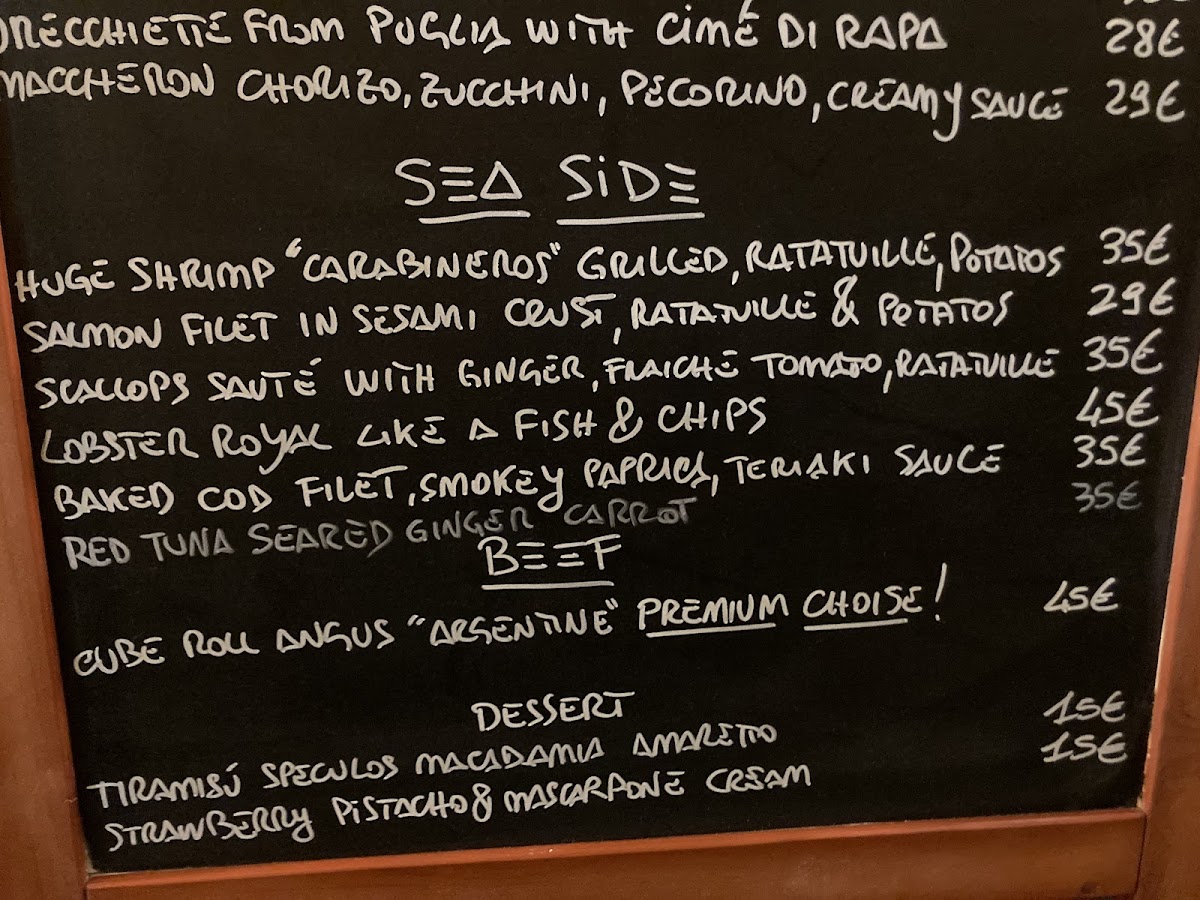 ORECCHIETTE FROM PUGLIA WITH CIMÉ DI RAPA 28€
MACCHERON CHORIZO, ZUCCHINI, PECORINO, CREAMY SAUCE 29€
SEA SIDE
HUGE SHRIMP "CARABINEROS" GRILLED, RATATUILLE, POTATOS 35€
SALMON FILET IN SESAMI CRUST, RATATUILLE & POTATOS 29€
SCALLOPS SAUTÉ WITH GINGER, FRAICHE TOMATO, RATATUILLE 35€
LOBSTER ROYAL LIKE A FISH & CHIPS 45€
BAKED COD FILET, SMOKEY PAPRICA, TERIAKI SAUCE 35€
RED TUNA SEARED GINGER CARROT 35€
BEEF
CUBE ROLL ANGUS "ARGENTINE" PREMIUM CHOISE! 45€
DESSERT
TIRAMISÚ SPECULOS MACADAMIA AMARETTO 15€
STRAWBERRY PISTACHO & MASCARPONE CREAM 15€